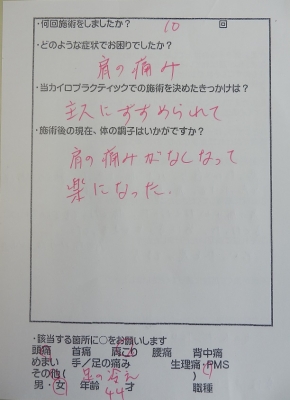 ・何回施術をしましたか？ 10 回
・どのような症状でお困りでしたか？
肩の痛み
・当カイロプラクティックでの施術を決めたきっかけは？
主人にすすめられて
・施術後の現在、体の調子はいかがですか？
肩の痛みがなくなって
楽になった.
・該当する箇所に○をお願いします
頭痛 首痛 肩こり 腰痛 背中痛
めまい 手／足の痛み 生理痛・PMS
その他（ 足の冷え ）
男・女 年齢 44 才 職種